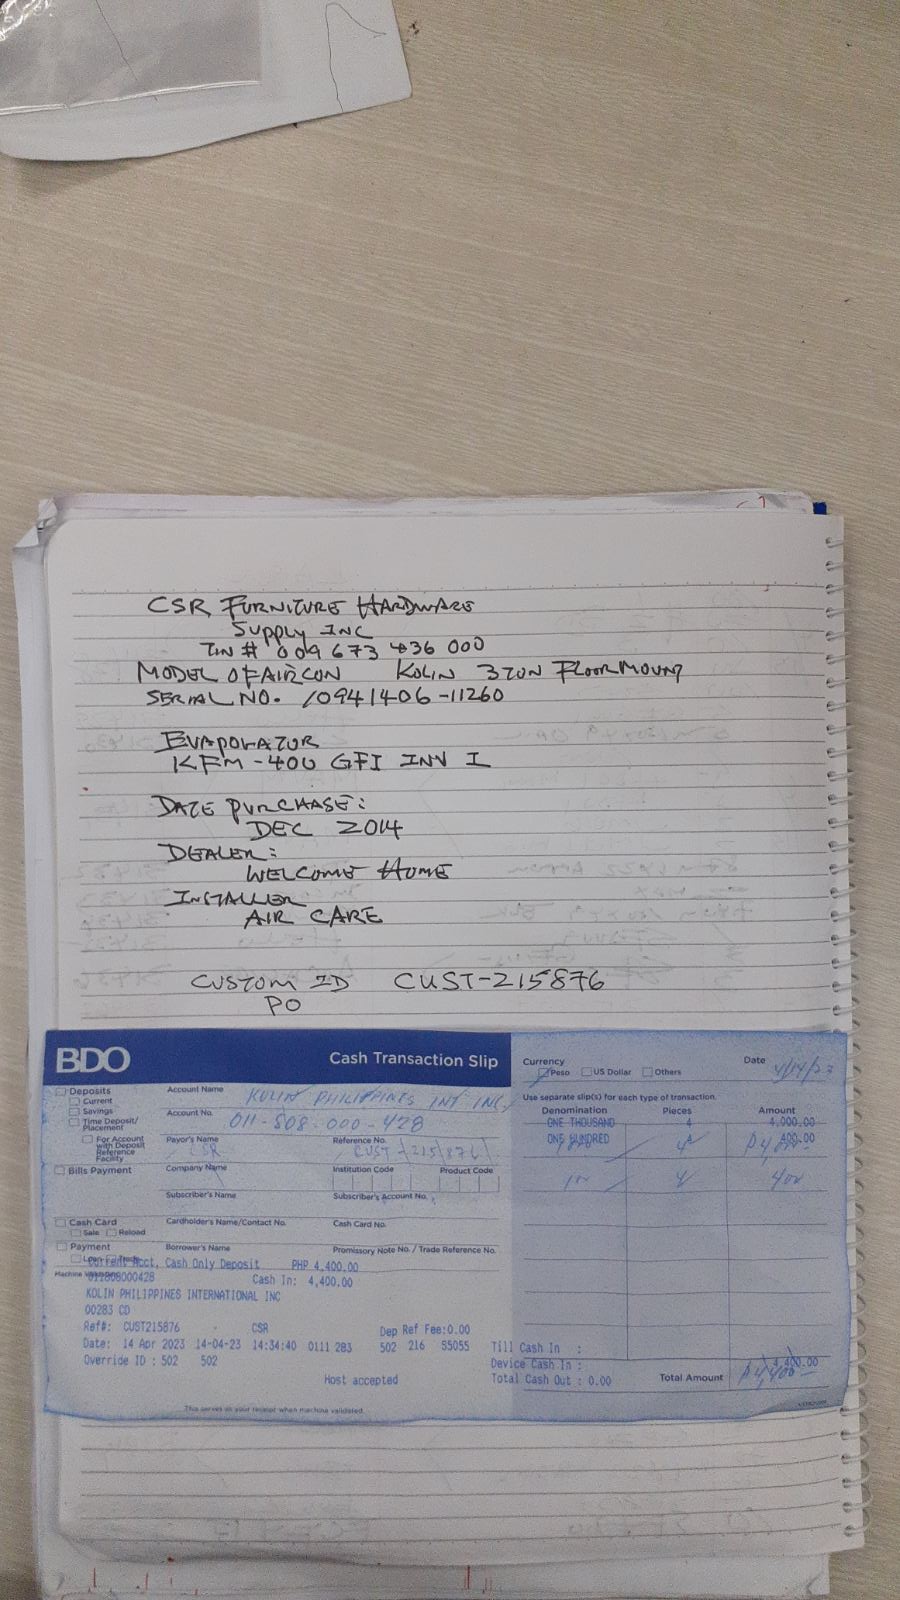 CSR FURNITURE HARDWARE
SUPPLY INC
TIN # 009 673 436 000
MODEL OF AIRCON KOLIN 3TON FLOORMOUNT
SERIAL NO. 10941406-11260
EVAPORATOR
KFM-400 GFI INV I
DATE PURCHASE:
DEC 2014
DEALER:
WELCOME HOME
INSTALLER
AIR CARE
CUSTOM ID CUST-215876
PO
BDO Cash Transaction Slip
Currency Date
Peso US Dollar Others 4/14/23
Deposits
Current
Savings
Time Deposit/
Placement
For Account
with Deposit
Reference
Facility
Account Name KOLIN PHILIPPINES INT INC.
Account No. 011-808-000-428
Payor's Name CSR Reference No. CUST-215876
Bills Payment Company Name Institution Code Product Code
Subscriber's Name Subscriber's Account No.
Cash Card Cardholder's Name/Contact No. Cash Card No.
Sale Reload
Payment Borrower's Name Promissory Note No. / Trade Reference No.
Loan Trade
Machine Validation
Current Acct, Cash Only Deposit PHP 4,400.00
011808000428 Cash In: 4,400.00
KOLIN PHILIPPINES INTERNATIONAL INC
00283 CD
Ref#: CUST215876 - CSR Dep Ref Fee:0.00
Date: 14 Apr 2023 14-04-23 14:34:40 0111 283 502 216 S5055
Override ID : 502 502
Host accepted
This serves as your receipt when machine validated.
Use separate slip(s) for each type of transaction.
Denomination Pieces Amount
ONE THOUSAND 4 4,000.00
ONE HUNDRED 4 400.00
100 4 400
Till Cash In :
Device Cash In : 4,400.00
Total Cash Out : 0.00
Total Amount ₱4,400